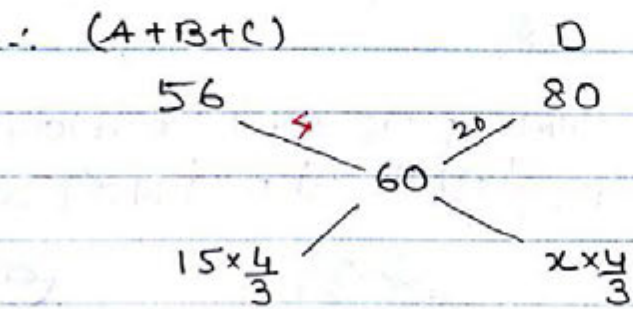 ∴ (A+B+C) D
56 80
4 20
60
15×4/3 x×4/3